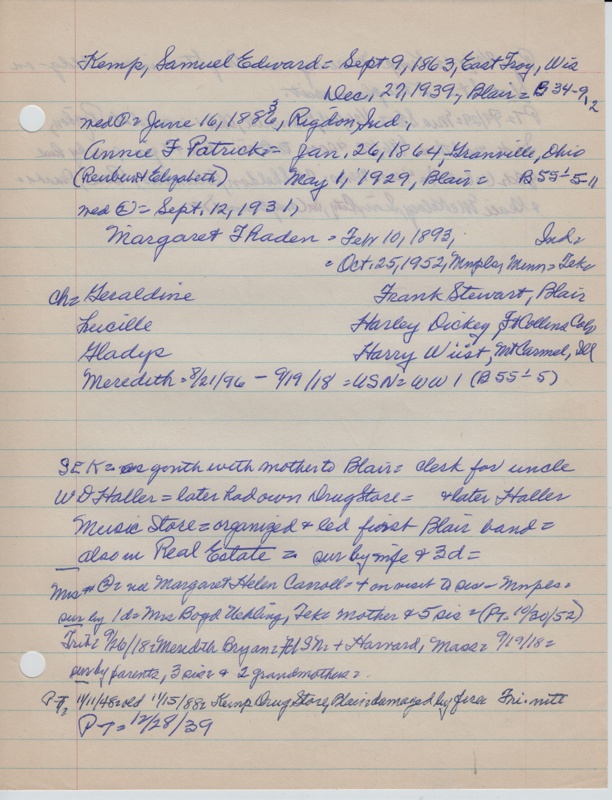 Kemp, Samuel Edward = Sept 9, 1863, East Troy, Wis
Dec, 27, 1939, Blair = B 34-9, 12
med ① = June 16, 1883, Rigdon, Ind,
Annie F Patrick = Jan. 26, 1864, Granville, Ohio
(Reuben & Elizabeth) May 1, 1929, Blair = B 55½-5-11
med ② = Sept. 12, 1931,
Margaret Thaden = Feb 10, 1893, Ind =
= Oct. 25, 1952, Mnpls, Minn = Tek
Ch = Geraldine Frank Stewart, Blair
Lucille Harley Dickey, Ft Collins Colo
Gladys Harry Wiist, Mt Carmel, Ill
Meredith = 8/21/96 - 9/19/18 = USN = WW 1 (B 55½ 5)
SEK = as youth with mother to Blair = clerk for uncle
W D Haller = later had own Drug Store = & later Haller
Music Store = organized & led first Blair band =
also in Real Estate = sur by wife & 3d =
Mrs # ② = nee Margaret Helen Carroll = + on visit to sis - Mnpls =
sur by 1d = Mrs Boyd Uehling, Tek = mother & 5 sis = (PT = 10/30/52)
Trib = 9/26/18 = Meredith Bryan = + Harvard, Mass = 9/19/18 =
sur by parents, 3 sis & 2 grandmothers =.
P-T, 11/11/48 = old 11/15/88 = Kemp Drug Store, Blair = damaged by fire Fri. nite
P-T = 12/28/39